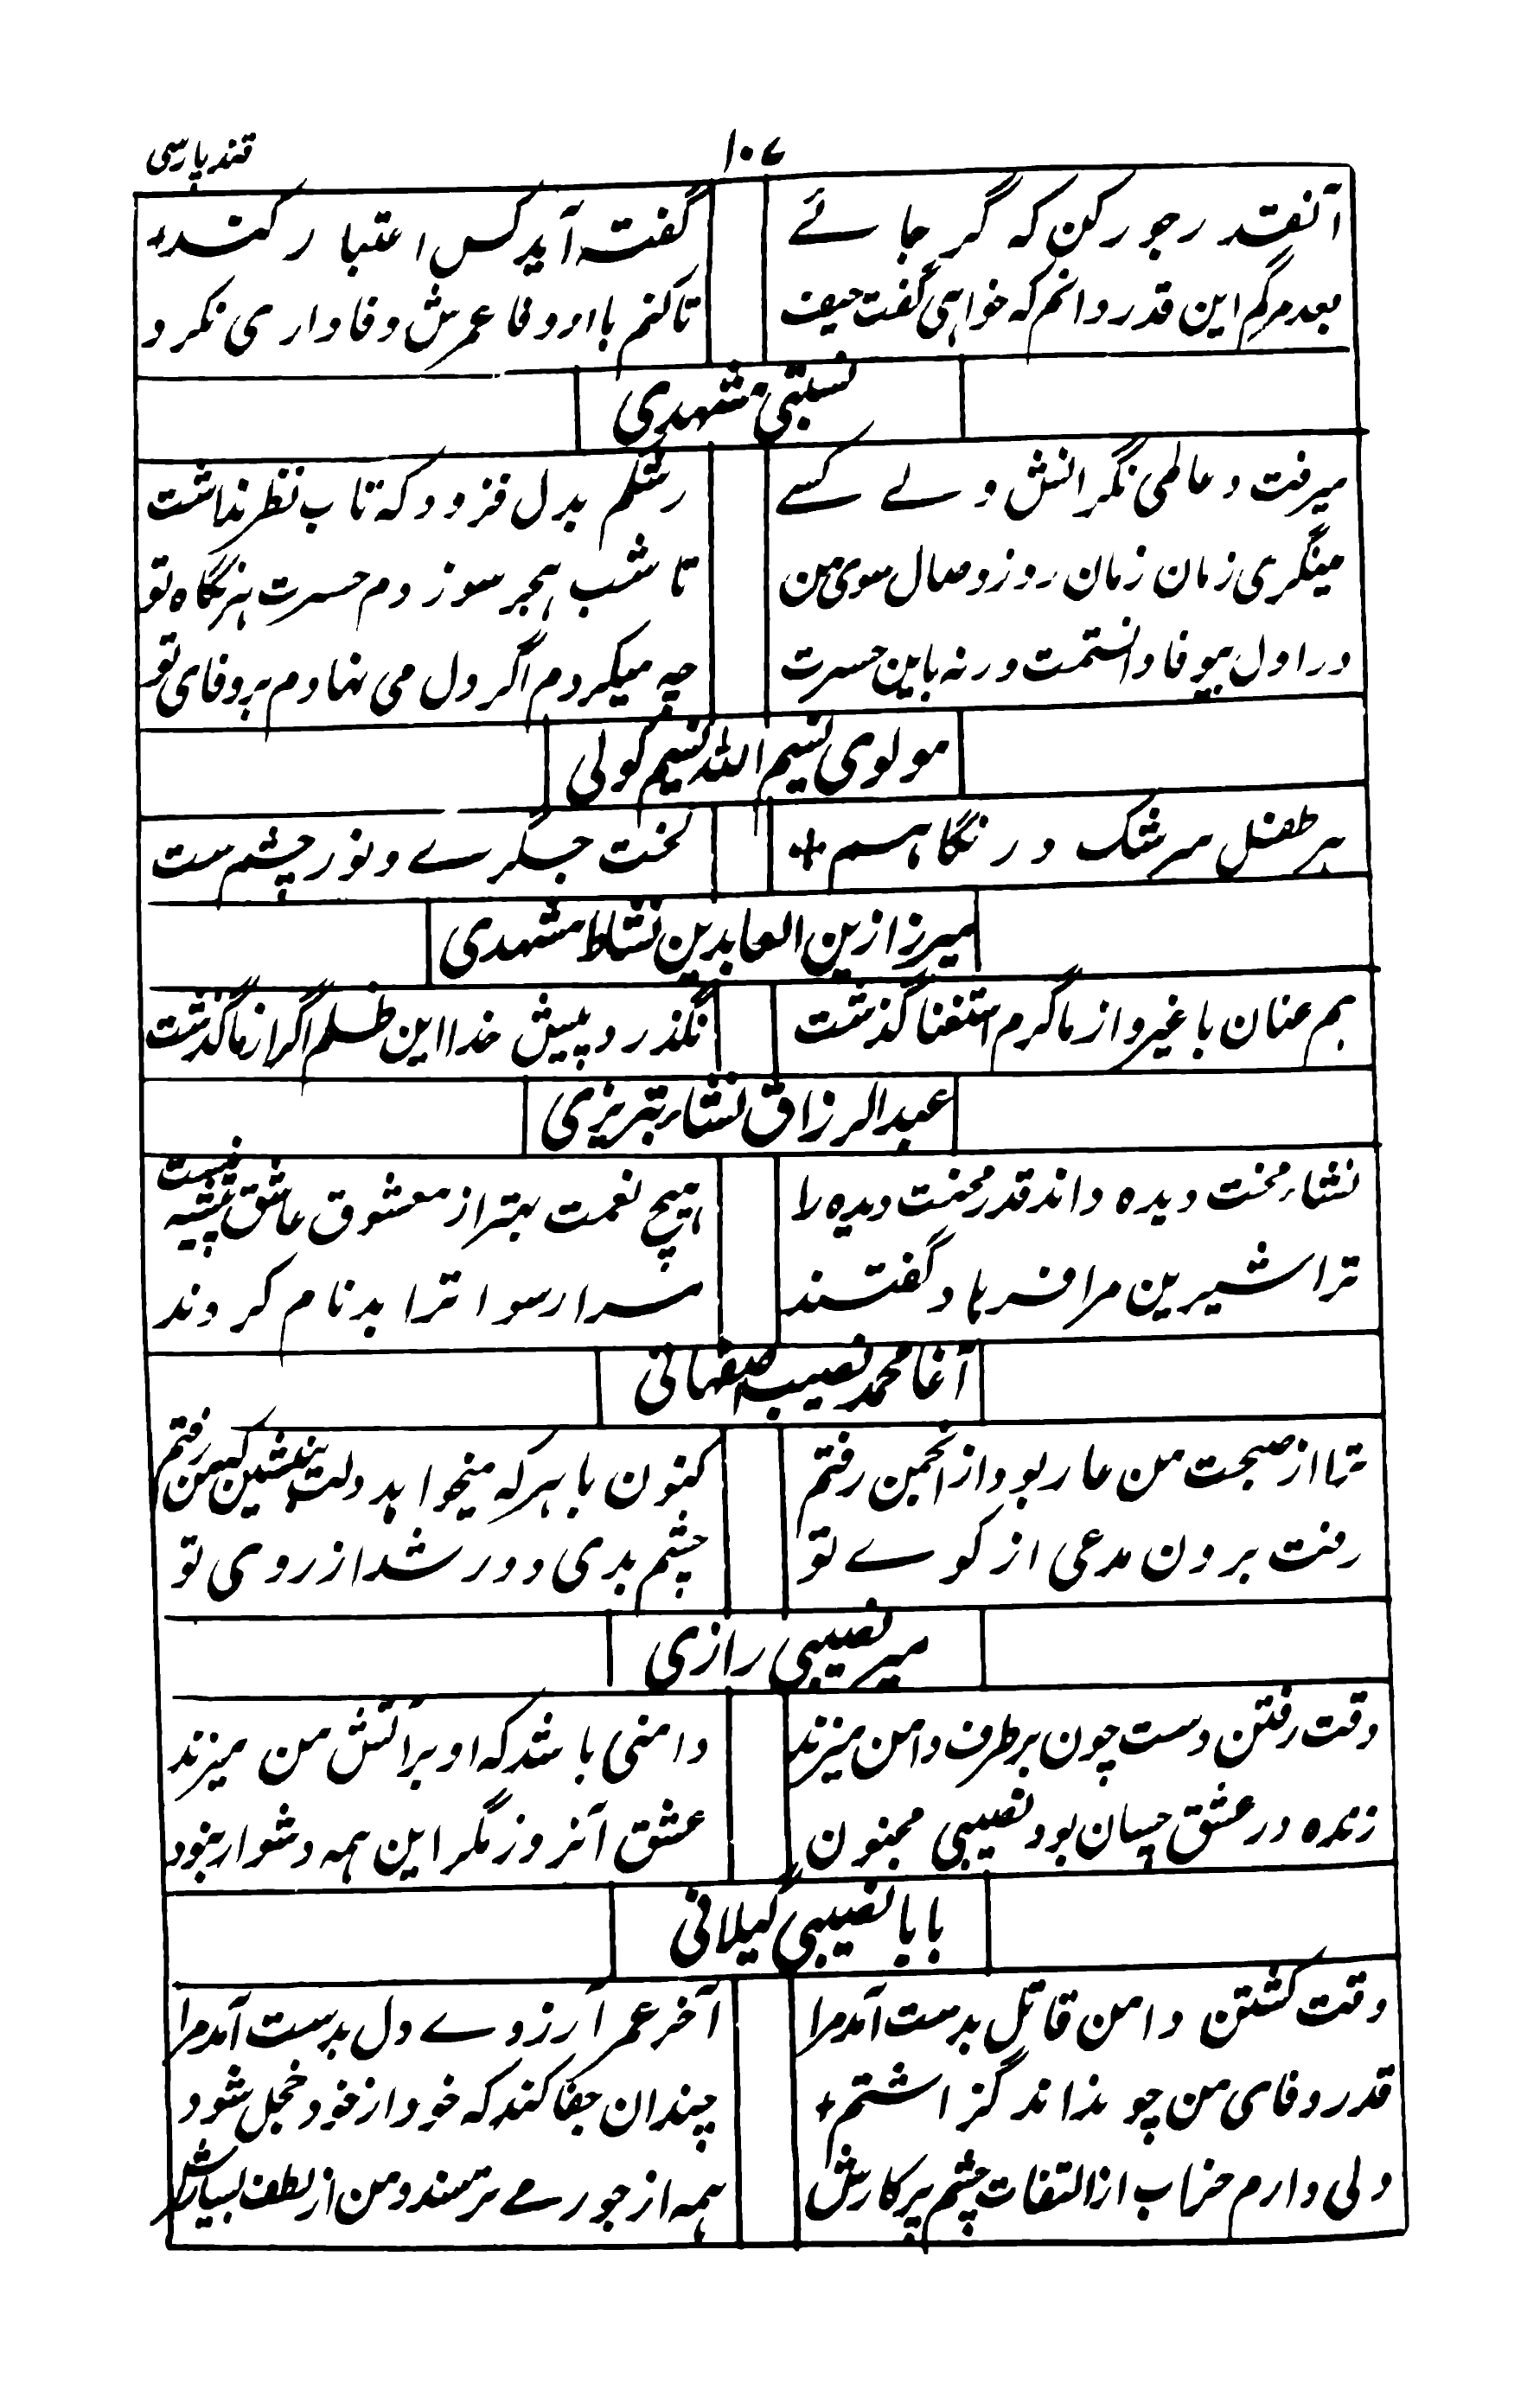 قند پارسی
۱۰۷
آنقدر جور کن که گر جائے
گفته آید کس اعتبار کند
بعد مرگم این قدر دانم که خواهی گفت حیف
تا کنم با او وفا عمرش وفاداری نکرد
نسبتی مشهدی
میرفت و عالمی نگرانش ولے کسے
رشکم بدل فزود که تاب نظر نداشت
مینگری زمان زمان روز وصال سوی من
تا شب هجر سوزدم حسرت هر نگاه تو
در اول بیوفا دانستمت ورنه باین حسرت
چه میکردم اگر دل می نهادم بر وفای تو
مولوی نسیم الله نسیم کولی
هر طفل سرشک در نگاهم
لخت جگرے و نور چشم ست
میرزا زین العابدین نشاط مشهدی
هم عنان با غیر و از ما گرم استغنا گذشت
نگذرد پیش خدا این ظلم اگر از ما گذشت
عبدالرزاق نشاء تبریزی
نشاء محنت دیده داند قدر محنت دیده را
هیچ نعمت بهتر از معشوق عاشق پیشه نیست
ترا شیرین مرا فرهاد گفتند
مرا رسوا ترا بدنام کردند
آغا محمد نصیب صفهانی
ترا از صحبت من عار بود از انجمن رفتم
کنون با هر که میخواهد دلت بنشین که من رفتم
رفت برون مدعی از کوے تو
چشم بدی دور شد از روی تو
میر نصیبی رازی
وقت رفتن دست چون بر طرف دامن میزند
دامنی باشد که او بر آتش من میزند
زنده در عشق چسان بود نصیبی مجنون
عشق آنروز مگر این همه دشوار نبود
بابا نصیبی گیلانی
وقت کشتن دامن قاتل بدست آمد مرا
آخر عمر آرزوے دل بدست آمد مرا
قدر وفای من چو نداند گزاشتم
چندان جفا کند که خود از خود خجل شود
دلی دارم خراب از التفات چشم پرکارش
همه از جور مے ترسند و من از لطف بسیارش